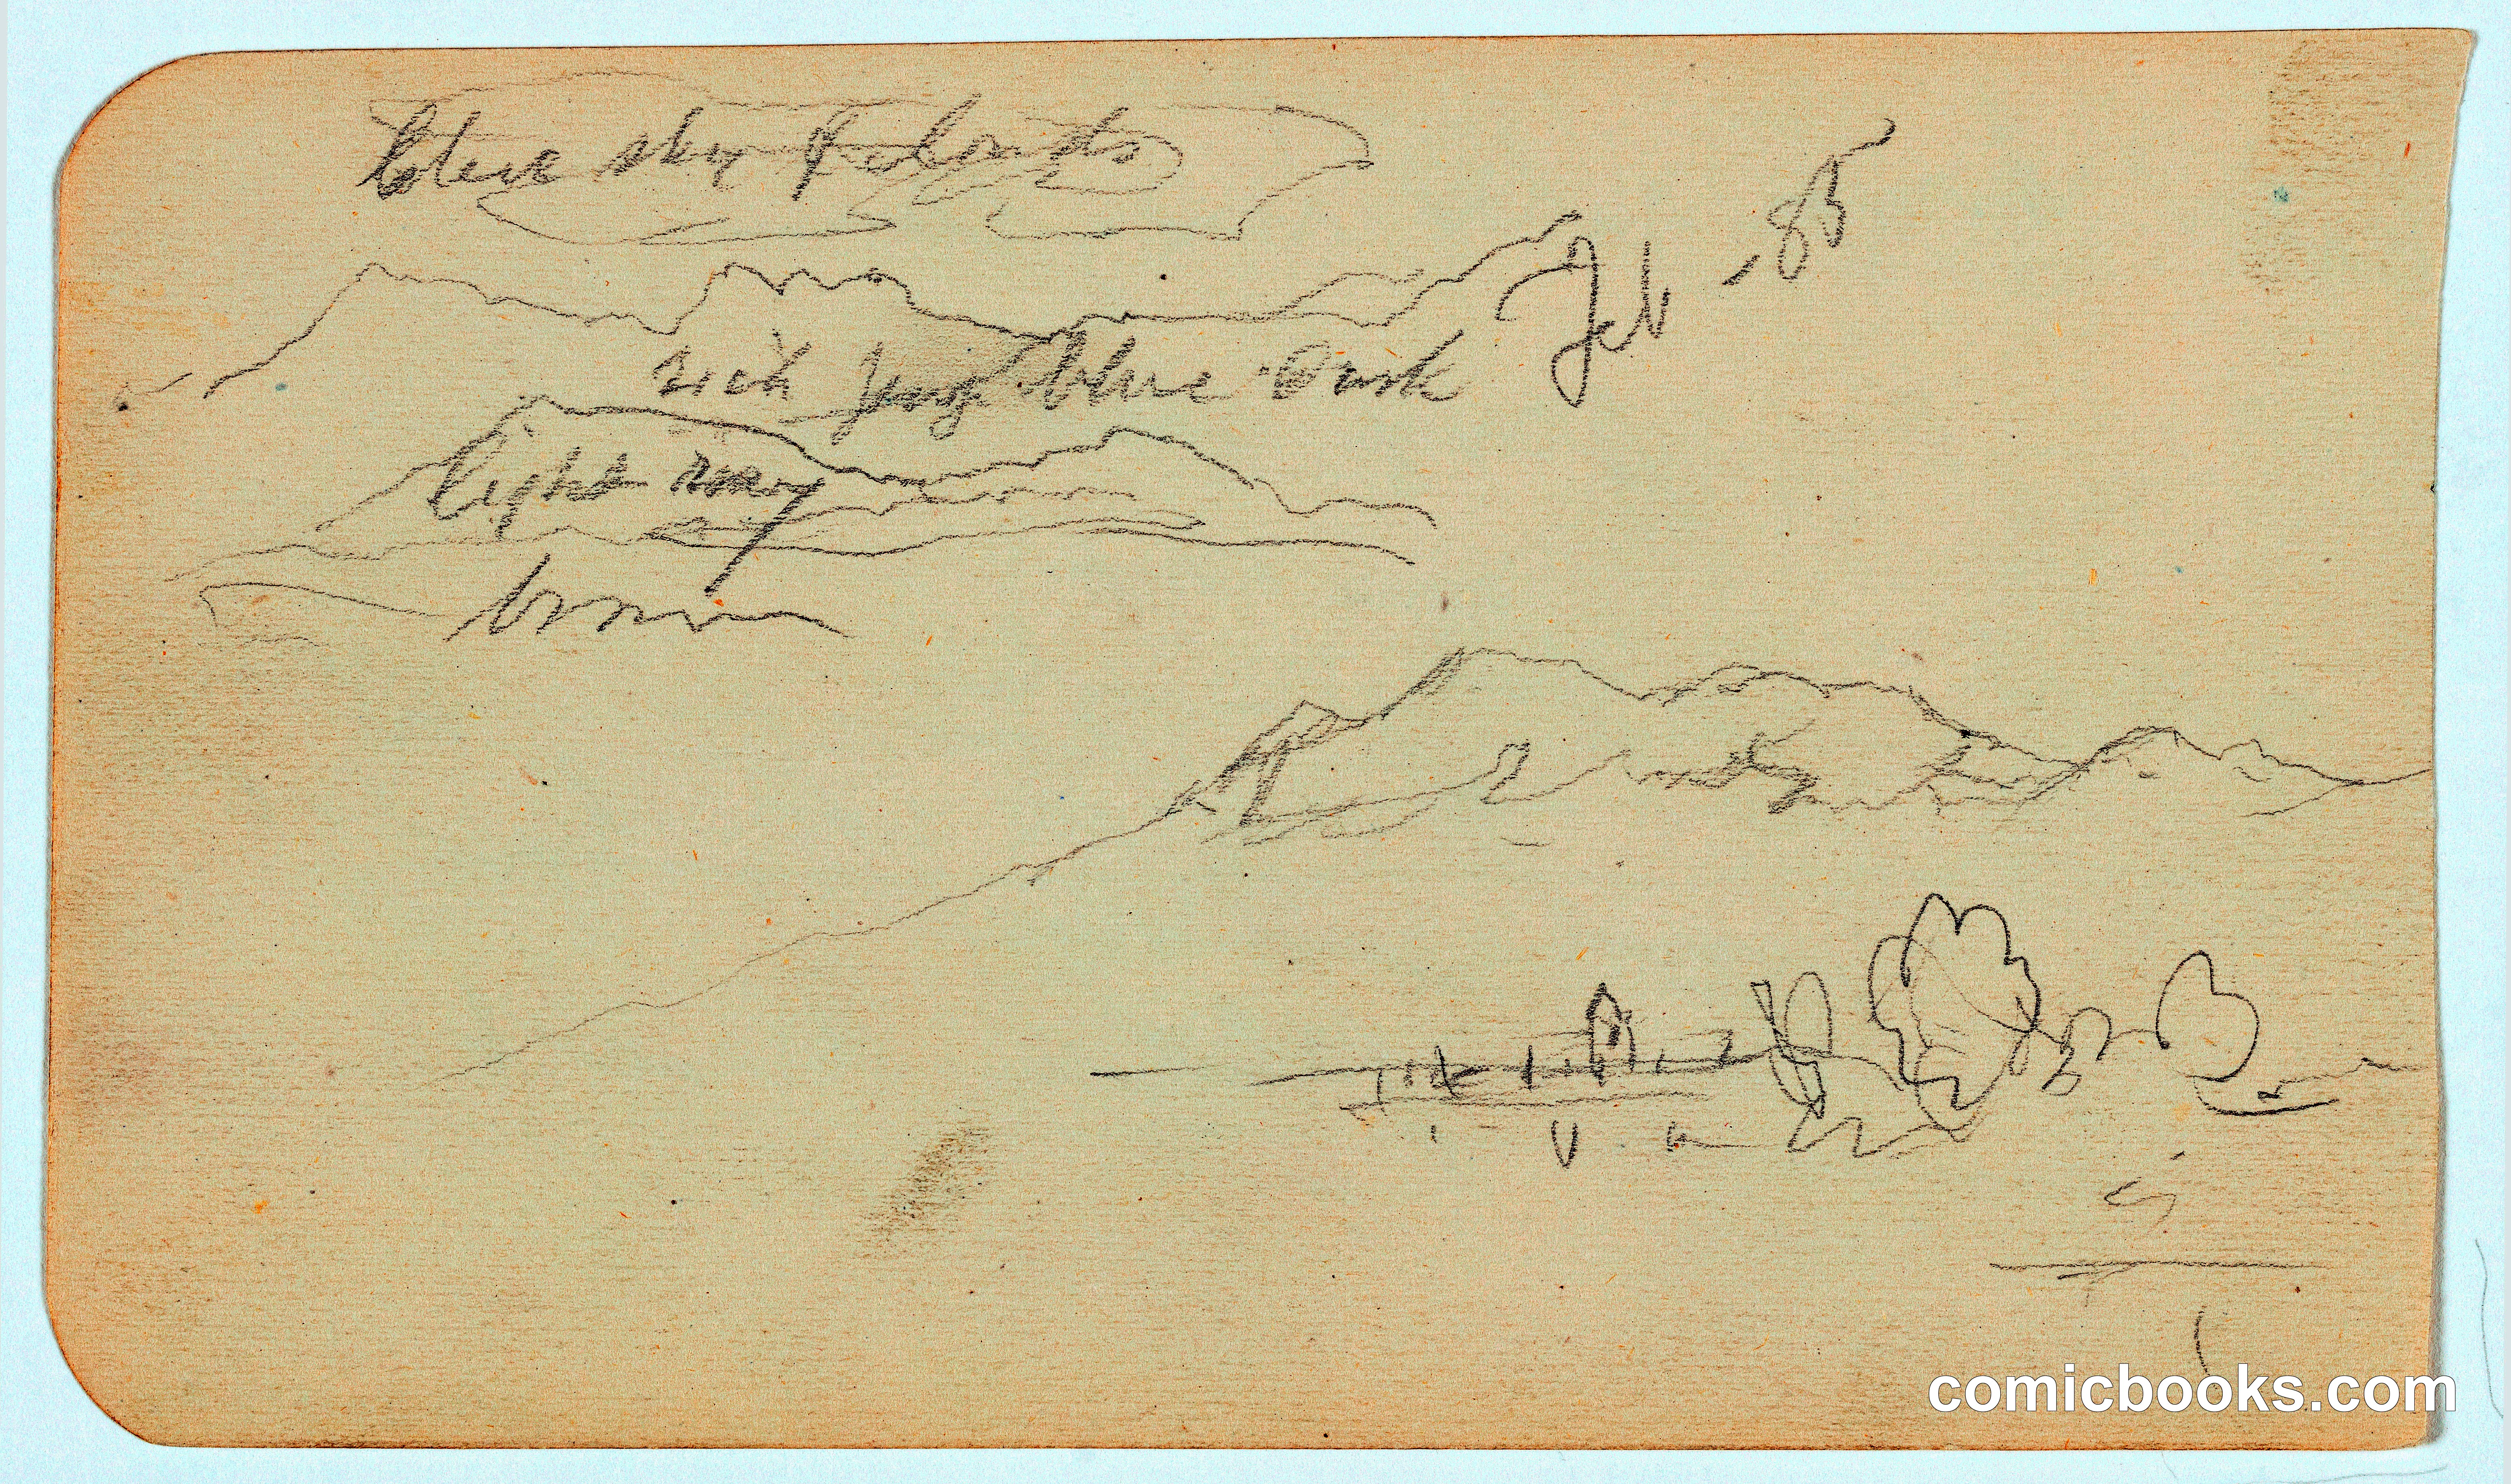 blue sky & clouds
Feb - 85
rich purp blue Dusk
light
brown
comicbooks.com